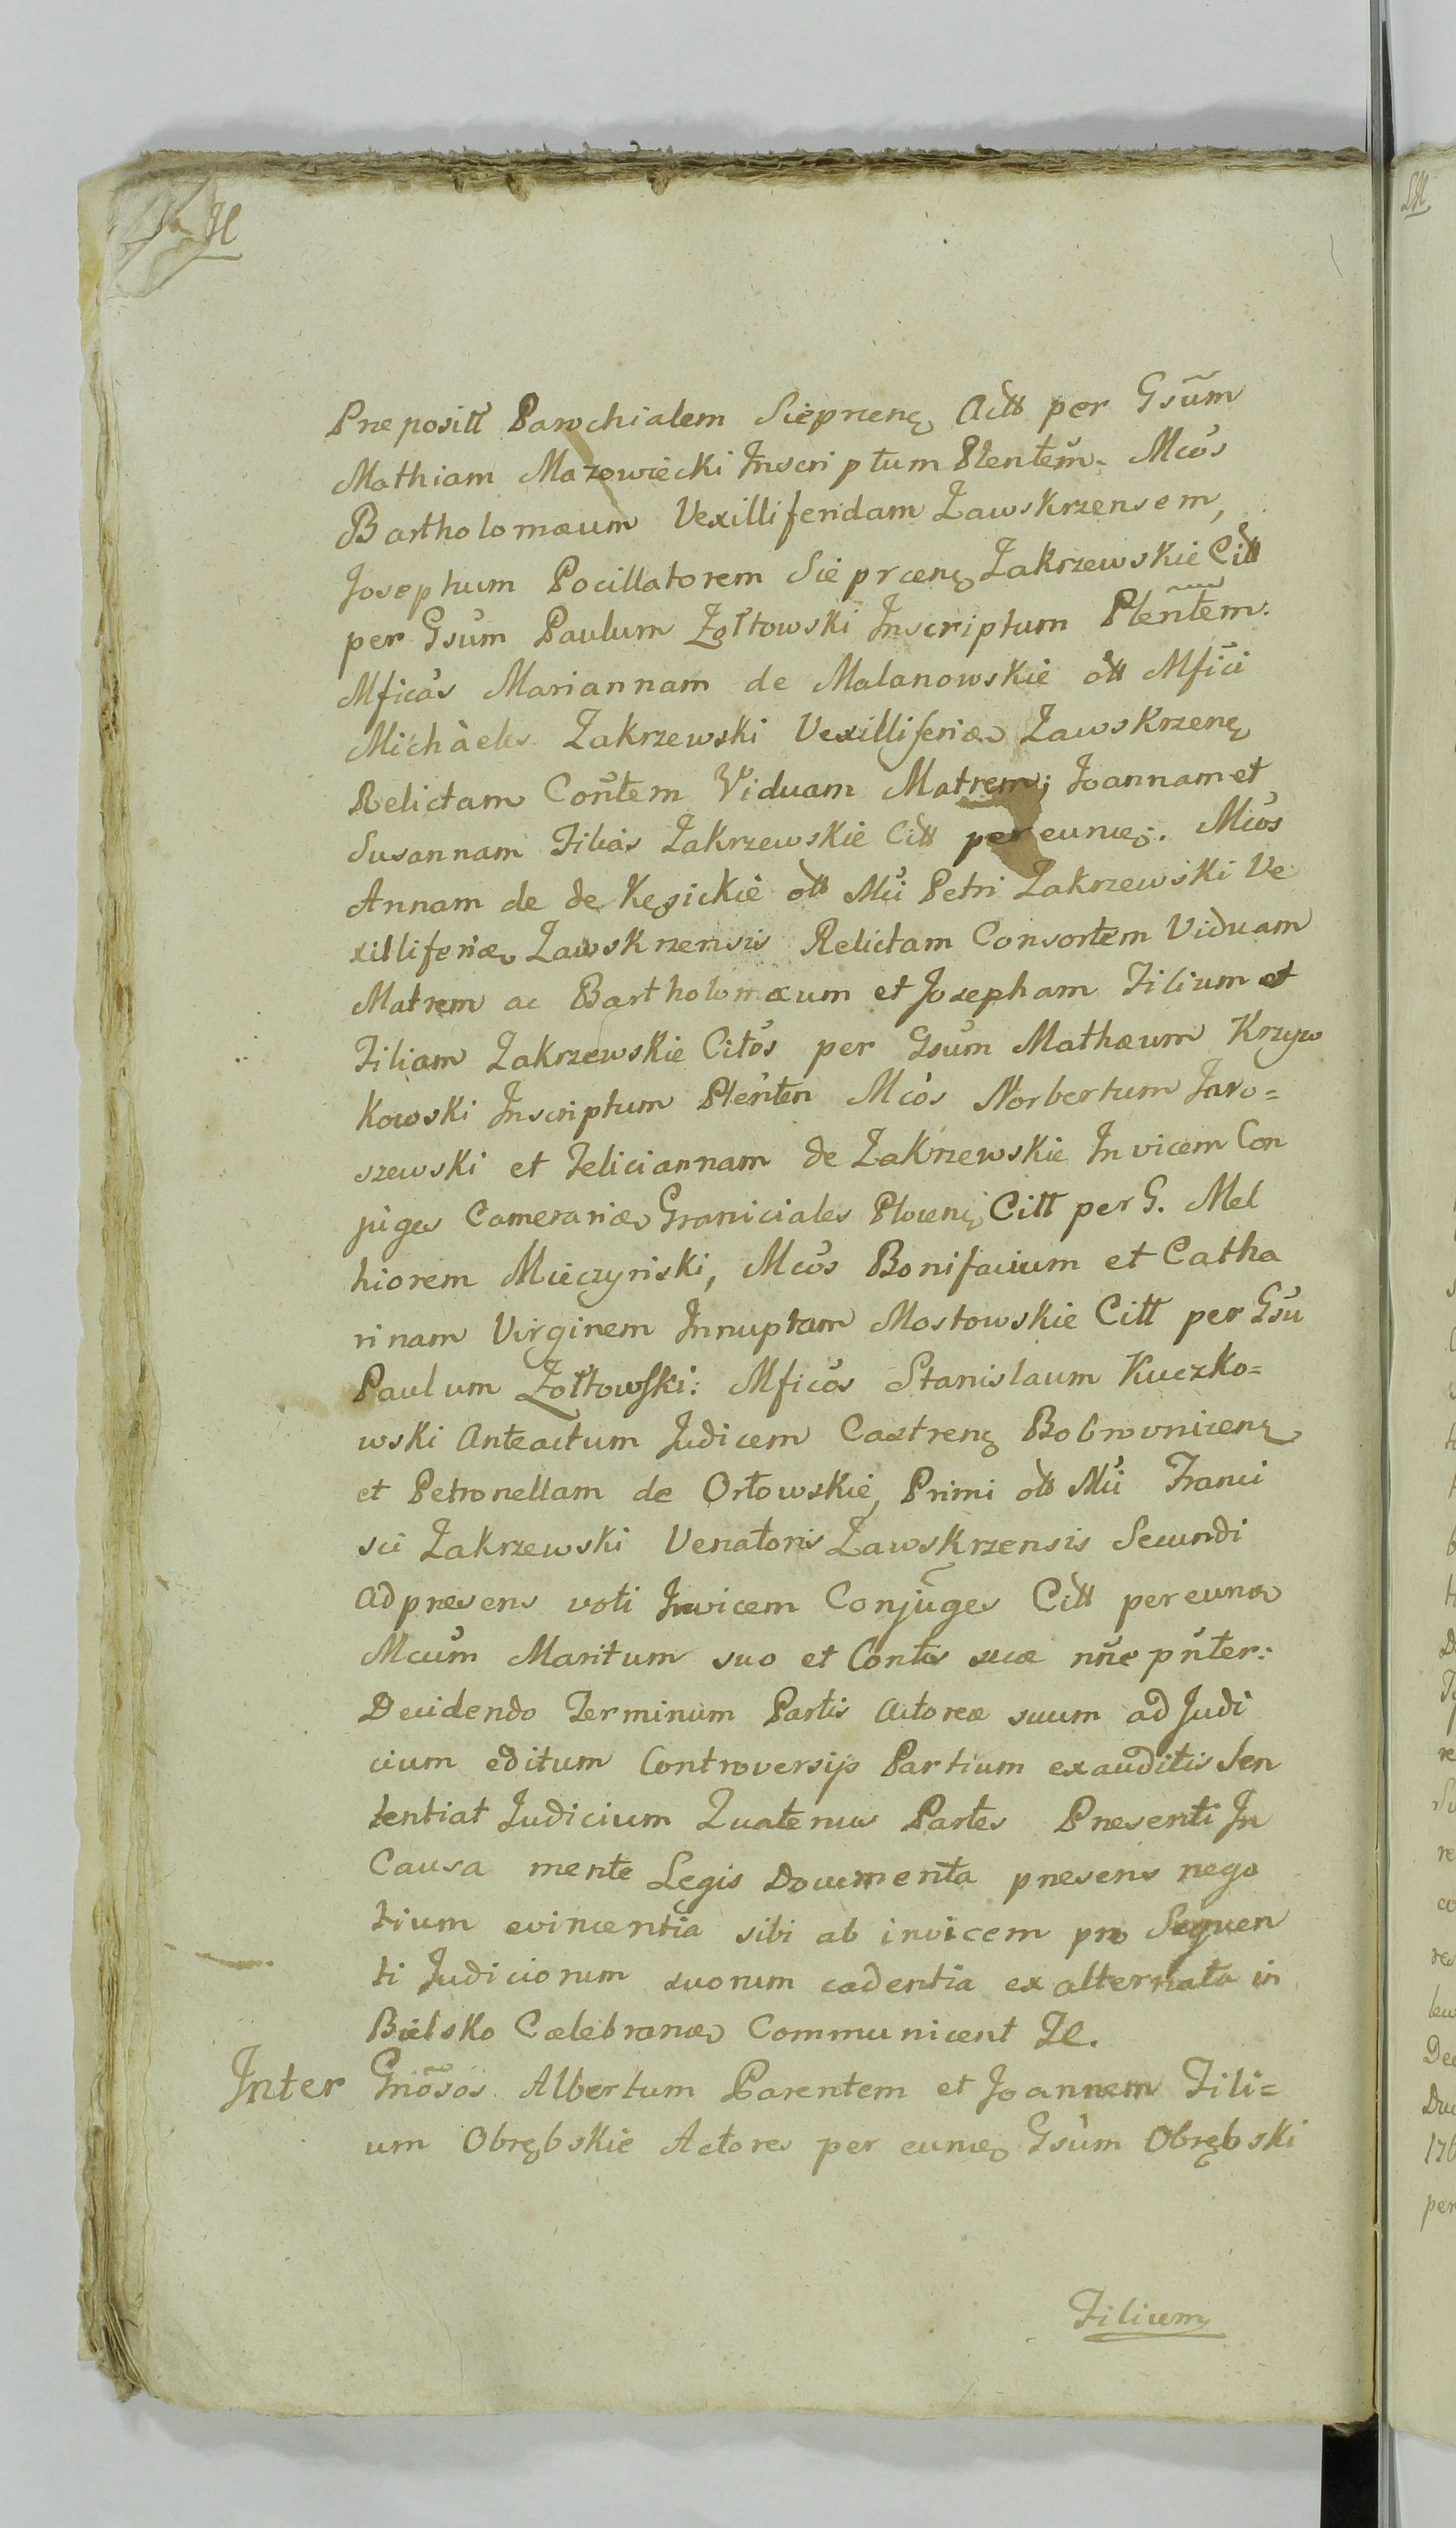 Prepositt Parochialem Sieprcenę Actt per Gsũm
Mathiam Mazowiecki Inscriptum Plentẽm. Mcos
Bartholomæum Vexilliferidam Zawskrzensem,
Josephum Pocillatorem Sieprcenę Zakrzewskie Citt
per Gsum Paulum Zołtowski Inscriptum Plentem.
Mficas Mariannam de Malanowskie ott Mfici
Michàelis Zakrzewski Vexilliferiæ Zawskrzenę
Relictam Contem Viduam Matrem; Joannam et
Susannam Filias Zakrzewskie Citt per eunıę. Mcos
Annam de de Kęsickie ott Mci Petri Zakrzewski Ve
xilliferiæ Zawskrzensis Relictam Consortem Viduam
Matrem ac Bartholomæum et Josepham Filium et
Filiam Zakrzewskie Citos per Gsum Mathæum Krzyw
kowski Inscriptum Plenten Mcos Norbertum Jaro=
szewski et Feliciannam de Zakrzewskie In vicem Con
juges Camerariæ Graniciales Plocenę Citt per G. Mel
hiorem Mieczyński, Mcos Bonifacium et Catha
rinam Virginem Innuptam Mostowskie Citt per Gsu
Paulum Zołtowski: Mficos Stanislaum Kuczko=
wski Anteactum Judicem Castrenę Bobrownicenę
et Petronellam de Orłowskie, Primi ott Mci Franci
sci Zakrzewski Venatoris Zawskrzensis Secundi
ad presens voti Invicem Conjuges Citt per eunæ
Mcum Maritum suo et Contis suæ nñe pñter:
Decidendo Terminum Partis Actoreæ suum ad Judi
cium editum Controversijs Partium exauditis Sen
tentiat Judicium Quatenus Partes Presenti In
Causa mente Legis Documenta presens nego
tium evincentia sibi ab invicem pro Sequen
ti Judiciorum suorum cadentia ex alternata in
Bielsko Cælebranæ Communicent Zc.
Inter Gnõsos Albertum Parentem et Joannem Fili=
um Obrębskie Actores per eunıę Gsum Obrębski
Filium